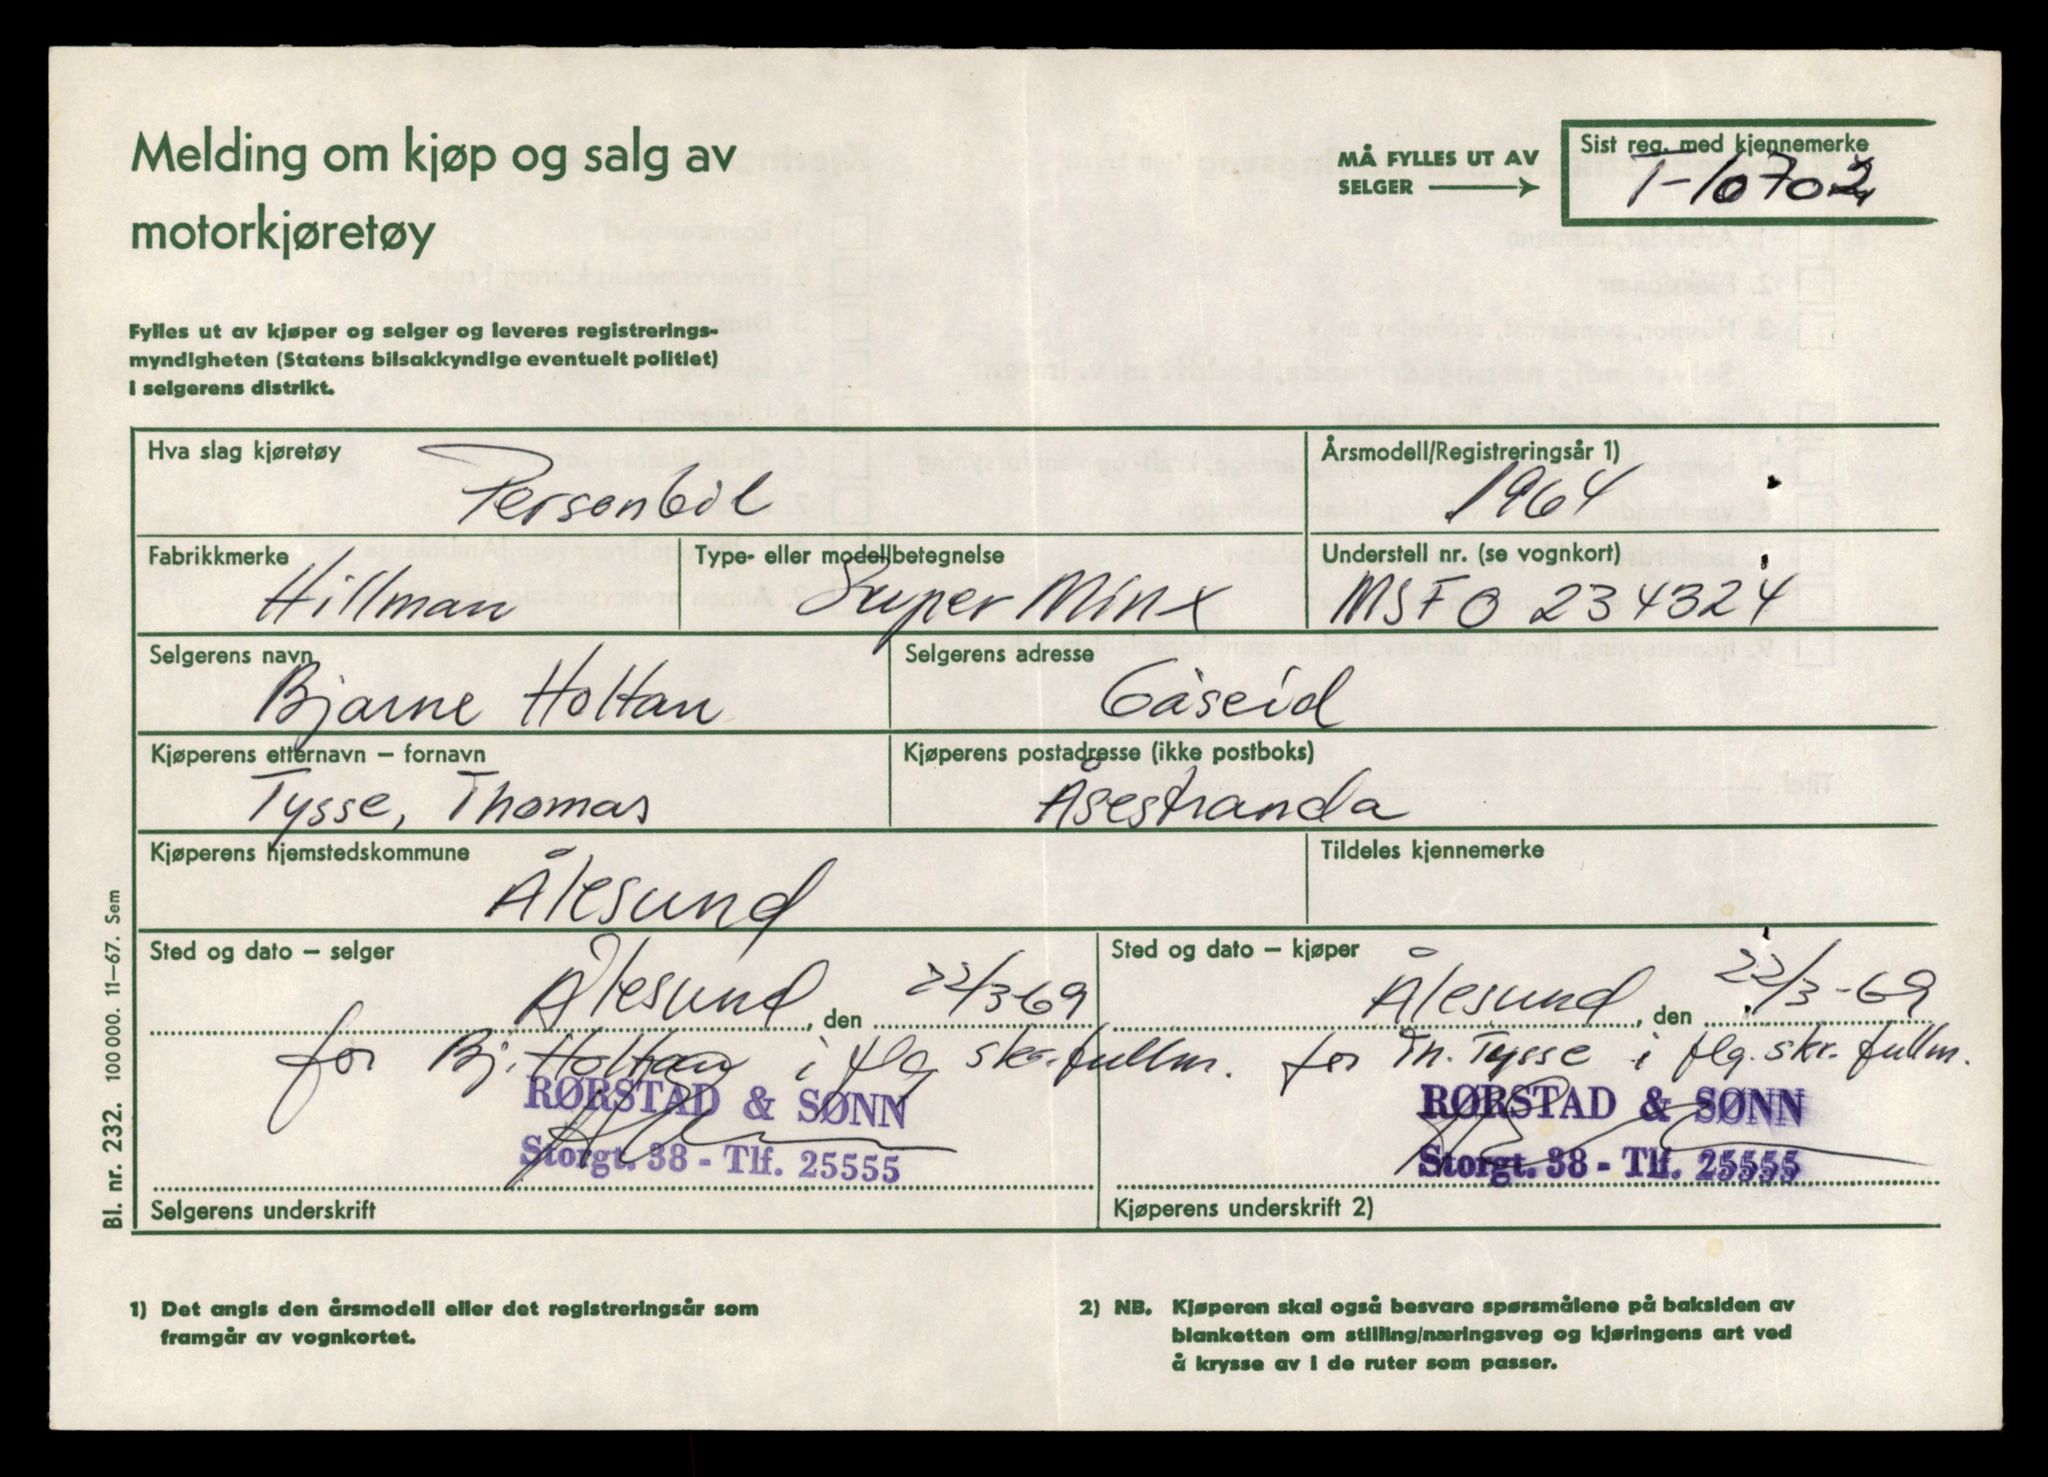 Melding om kjøp og salg av
motorkjøretøy
MÅ FYLLES UT AV
SELGER
Sist reg. med kjennemerke
T-10702
Fylles ut av kjøper og selger og leveres registrerings-
myndigheten (Statens bilsakkyndige eventuelt politiet)
i selgerens distrikt.
Hva slag kjøretøy
Personbil
Årsmodell/Registreringsår 1)
1964
Fabrikkmerke
Hillman
Type- eller modellbetegnelse
Super Minx
Understell nr. (se vognkort)
MSFO 234324
Selgerens navn
Bjarne Holtan
Selgerens adresse
Gåseid
Kjøperens etternavn – fornavn
Tysse, Thomas
Kjøperens postadresse (ikke postboks)
Åsestranda
Kjøperens hjemstedskommune
Ålesund
Tildeles kjennemerke
Sted og dato – selger
Ålesund, den 22/3-69
for Bj. Holtan i flg skr. fullm.
RØRSTAD & SØNN
Storgt. 38 - Tlf. 25555
Selgerens underskrift
Sted og dato – kjøper
Ålesund, den 22/3-69
for Th. Tysse i flg. skr. fullm.
RØRSTAD & SØNN
Storgt. 38 - Tlf. 25555
Kjøperens underskrift 2)
Bl. nr. 232. 100 000. 11–67. Sem
1) Det angis den årsmodell eller det registreringsår som
framgår av vognkortet.
2) NB. Kjøperen skal også besvare spørsmålene på baksiden av
blanketten om stilling/næringsveg og kjøringens art ved
å krysse av i de ruter som passer.